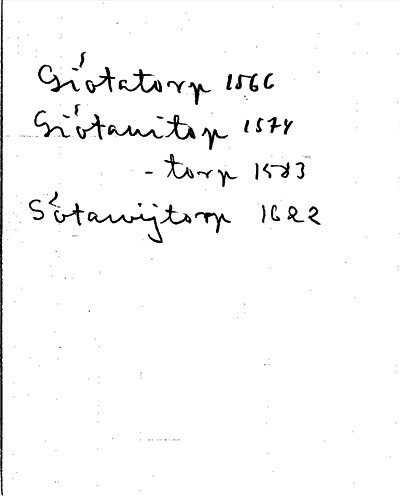 Giötatorp 1566
Giötauitop 1574
- torp 1583
Sötawijtorp 1622